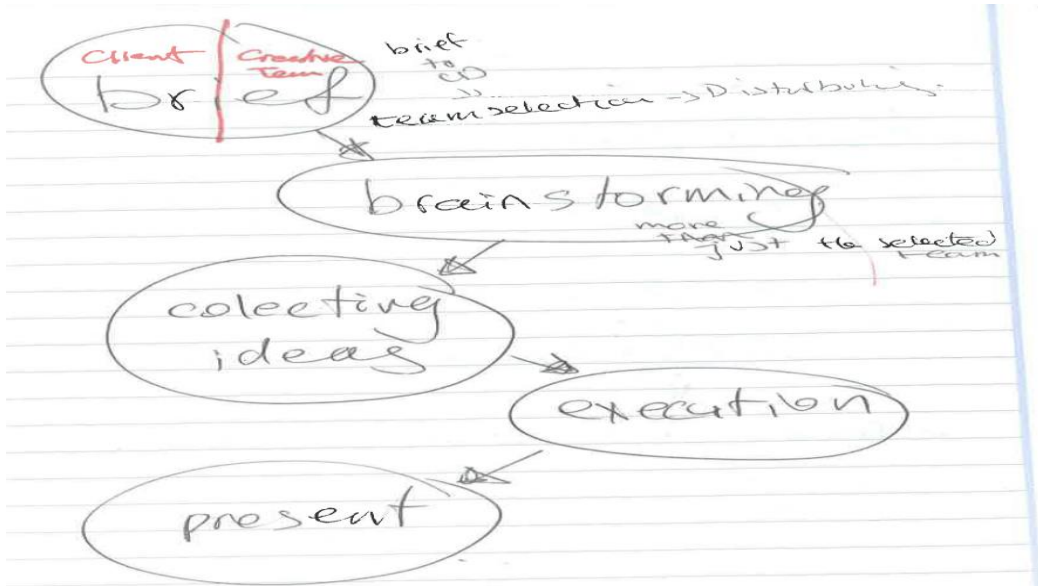 Client
Creative
Team
brief
brief
to
CD
team selection → Distributing.
brainstorming
more
than
just the selected
team
colecting
ideas
execution
present